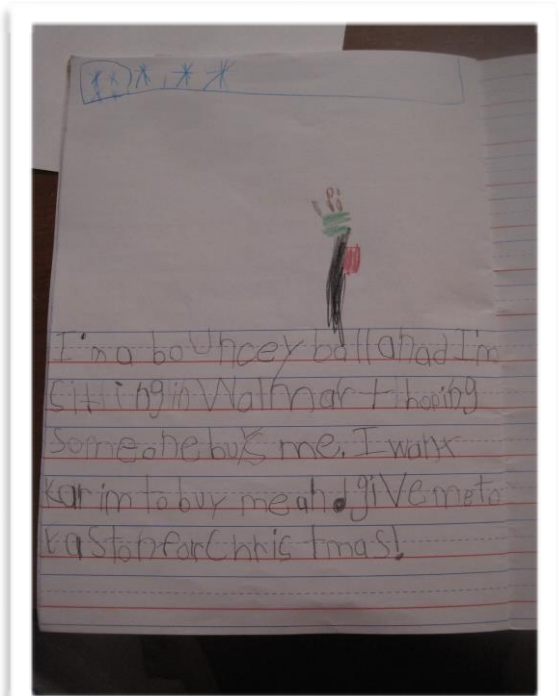 I'm a bouncey ball ahad I'm
sitting in Walmart hoping
someone buys me. I want
karim to buy me and give me to
kaston for Christmas!